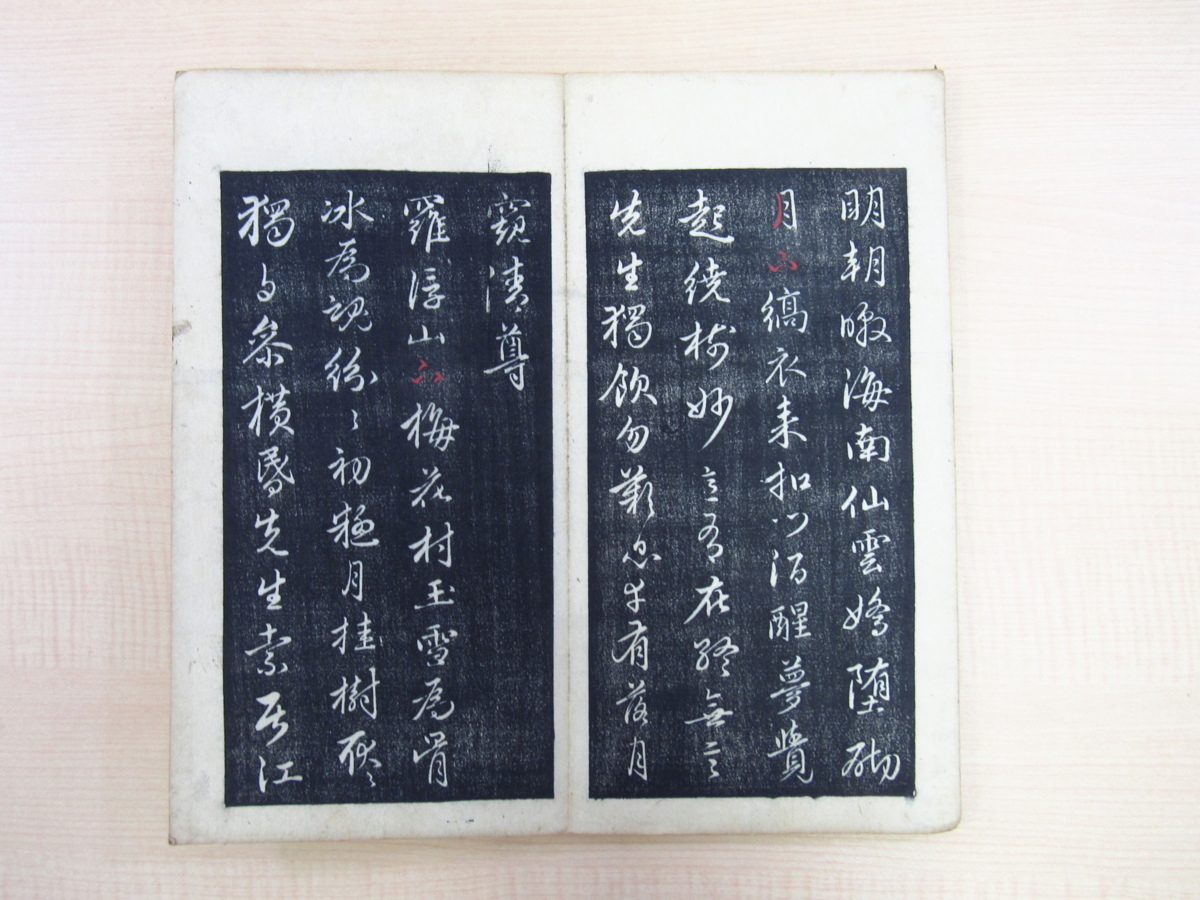 明朝暾海南仙雲嬌堕砌
月下縞衣来扣门酒醒夢覺
起繞樹妙意有在終無言
先生獨飲勿歎息幸有落月
窺清尊
羅浮山下梅花村玉雪為骨
冰為魂紛〻初疑月挂樹耿〻
獨与參橫昏先生索居江